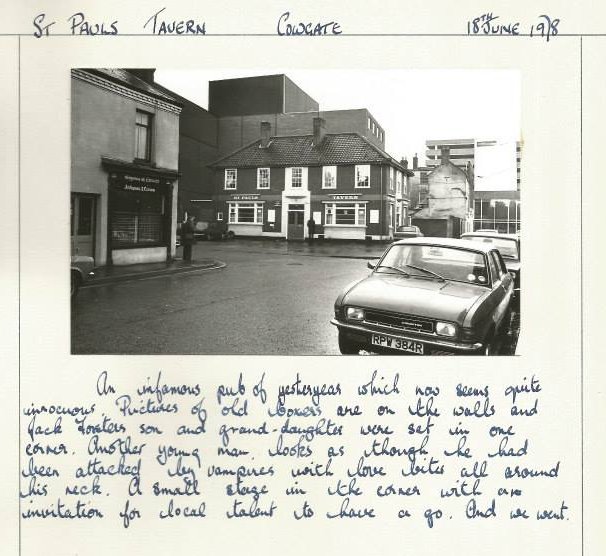 St Pauls Tavern Cowgate 18TH June 1978
ST PAULS TAVERN
RPW 384R
An infamous pub of yesteryears which now seems quite
innocuous. Pictures of old boxers are on the walls and
Jack Forsters son and grand-daughter were sat in one
corner. Another young man looks as though he had
been attacked by vampires with love bites all around
his neck. A small stage in the corner with an
invitation for local talent to have a go. And we went.